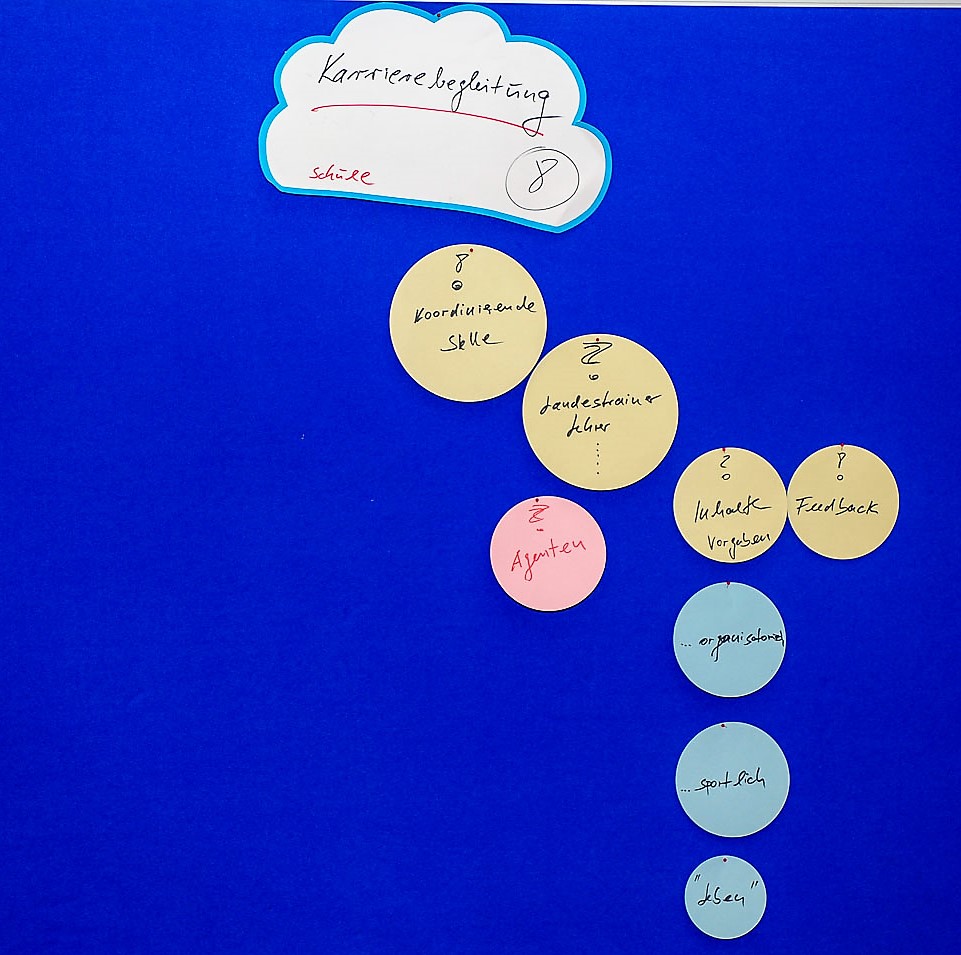 Karrierebegleitung
Schule
8
8
Koordinierende
Stelle
2
Landestrainer
Lehrer
......
2
Inhalte
vorgeben
Feedback
Agenten
... organisatorisch
... sportlich
"Leben"